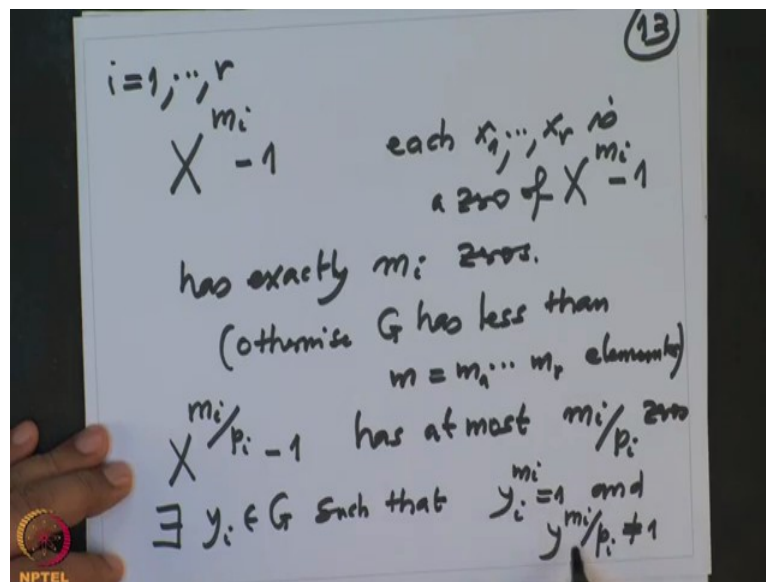 13
i=1,...,r
X^{m_i} - 1
each x_1,...,x_r is
a zero of X^{m_i} - 1
has exactly m_i zeros.
(otherwise G has less than
m = m_1 ... m_r elements)
X^{m_i/p_i} - 1 has at most m_i/p_i zero
∃ y_i ∈ G such that y_i^{m_i} = 1 and
y^{m_i/p_i} ≠ 1
NPTEL